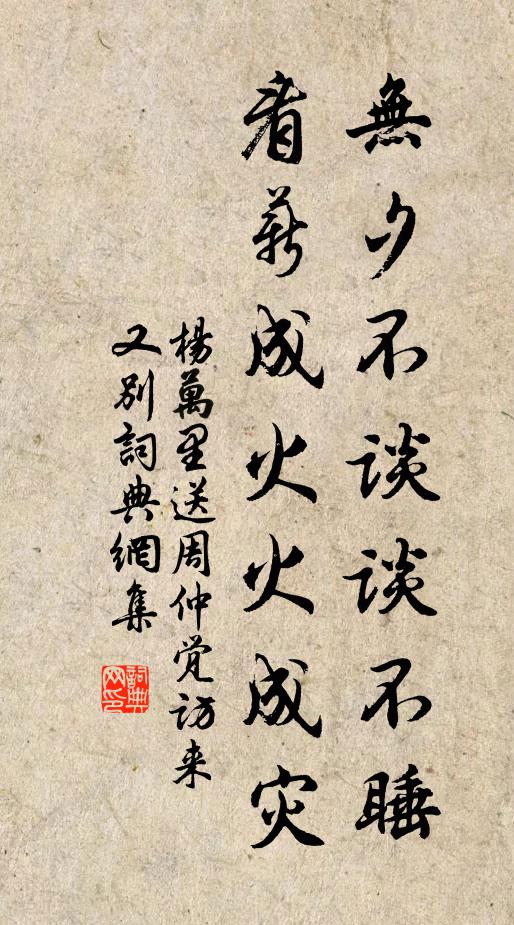 無夕不谈谈不睡
看薪成火火成灾
楊萬里送周仲觉访来
又別詞典網集
詞典
网印